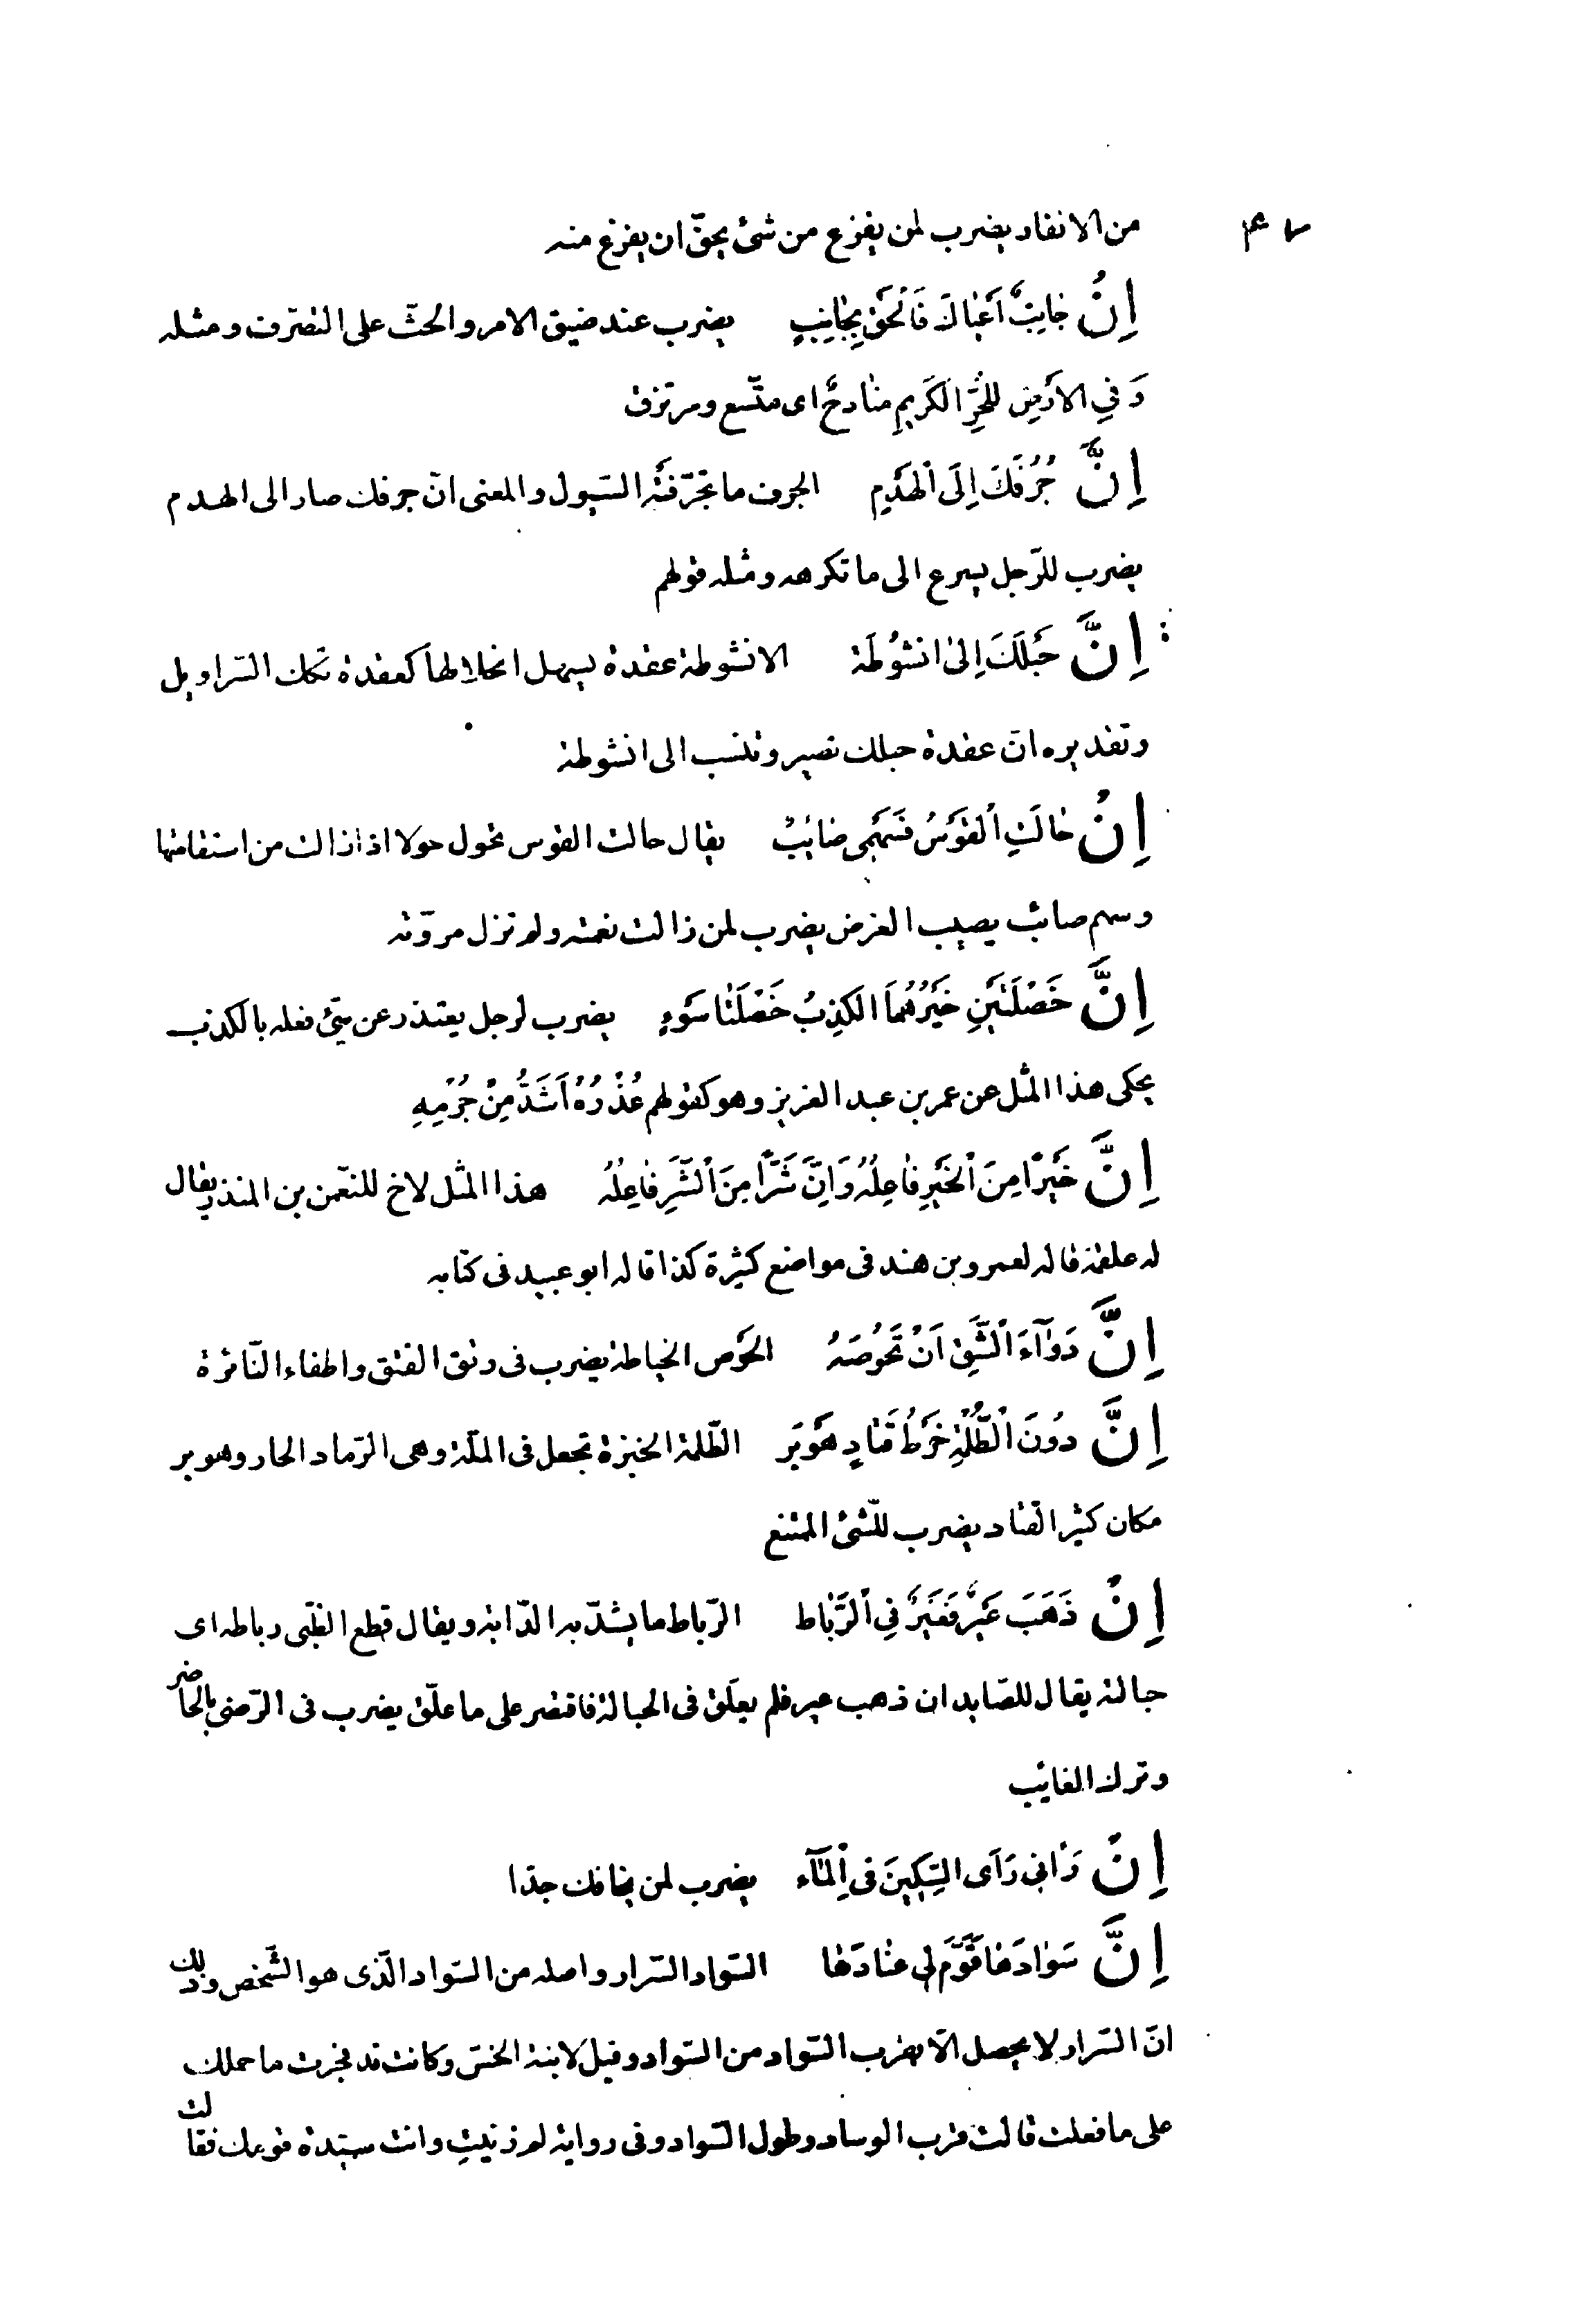 من الانفار يضرب لمن يفزع من شئ يحقّ ان يفزع منه
اِنْ جَانِبٌ اَعْيَاكَ فَالْحَقْ بِجَانِبٍ يضرب عند ضيق الامر والحثّ على التصرّف ومثله
وَفِي الاَرْضِ لِلْحُرِّ الكَرِيمِ مَنَادِحُ اى متّسع ومرتزق
اِنَّ جُرُفَكَ اِلَى الْهَدْمِ الجرف ما تجرّفَتْهُ السّيول والمعنى انّ جرفك صار الى الهدم
يضرب للرّجل يسرع الى ما تكرهه ومثله قولهم
اِنَّ حَبْلَكَ اِلىٰ اُنْشُوُطَة الانشوطة عقدة يسهل انحلالها كعقدة تكك السّراويل
وتقديره انّ عقدة حبلك تصير وتنسب الى انشوطة
اِنْ حَالَتِ الْقَوْسُ فَسَهْمِى صَائِبٌ يقال حالت القوس تحول حولا اذا زالت من استقامتها
وسهم صائب يصيب الغرض يضرب لمن زالت نعمته ولم تزل مروّته
اِنَّ خَصْلَتَيْنِ خَيْرُهُمَا الكَذِبُ خَصْلَتَا سَوْءٍ يضرب لرجل يعتذر عن سيّئ فعله بالكذب
يحكى هذا المثل عن عمر بن عبد العزيز وهو كقولهم عُذْرُهُ اَشَدُّ مِنْ جُرْمِهِ
اِنَّ خَيْرًا مِنَ الْخَيْرِ فَاعِلُهُ وَاِنَّ شَرًّا مِنَ الْشَّرِّ فَاعِلُهُ هذا المثل لاخ للنعّمن بن المنذر يقال
له علقمة قاله لعمرو بن هند فى مواضع كثيرة كذا قاله ابو عبيد فى كتابه
اِنَّ دَوَآءَ الْشَّقِّ اَنْ تَحُوصَهُ الحَوص الخياطة يضرب فى رتق الفتق واطفاء النّائرة
اِنَّ دوُنَ الْطُّلْمَةِ خَرْطُ قَتَادِ هَوْبَر الطّلمة الخبزة تجعل فى الملّة وهى الرّماد الحار وهوبر
مكان كثير القتاد يضرب للشّئ الممتنع
اِنْ ذَهَبَ عَيْرٌ فَعَيْرٌ فِي الْرِّبَاط الرّباط ما يشدّ به الدّابة ويقال قطع الظبّى رباطه اى
حبالته يقال للصّايد ان ذهب عير فلم يعلَق فى الحبالة فاقتصر على ما علّق يضرب فى الرّضى بالحاضر
وترك الغايب
اِنْ رَاٰنِى رَاَى السِّكِّينَ فِى الْمَآء يضرب لمن يخافك جدّا
اِنَّ سَوَادَهَا قَوَّمَ لِى عِنَادَهَا السّواد السّرار واصله من السّواد الّذى هو الشّخص وذلك
انّ السّرار لا يحصل الّا بقرب السّواد من السّواد وقيل لابنة الخسّ وكانت قد فجرت ما حملك
على ما فعلت قالت قرب الوساد وطول السّواد وفى رواية لم زنيتِ وانت سيّدة قومك فقالت